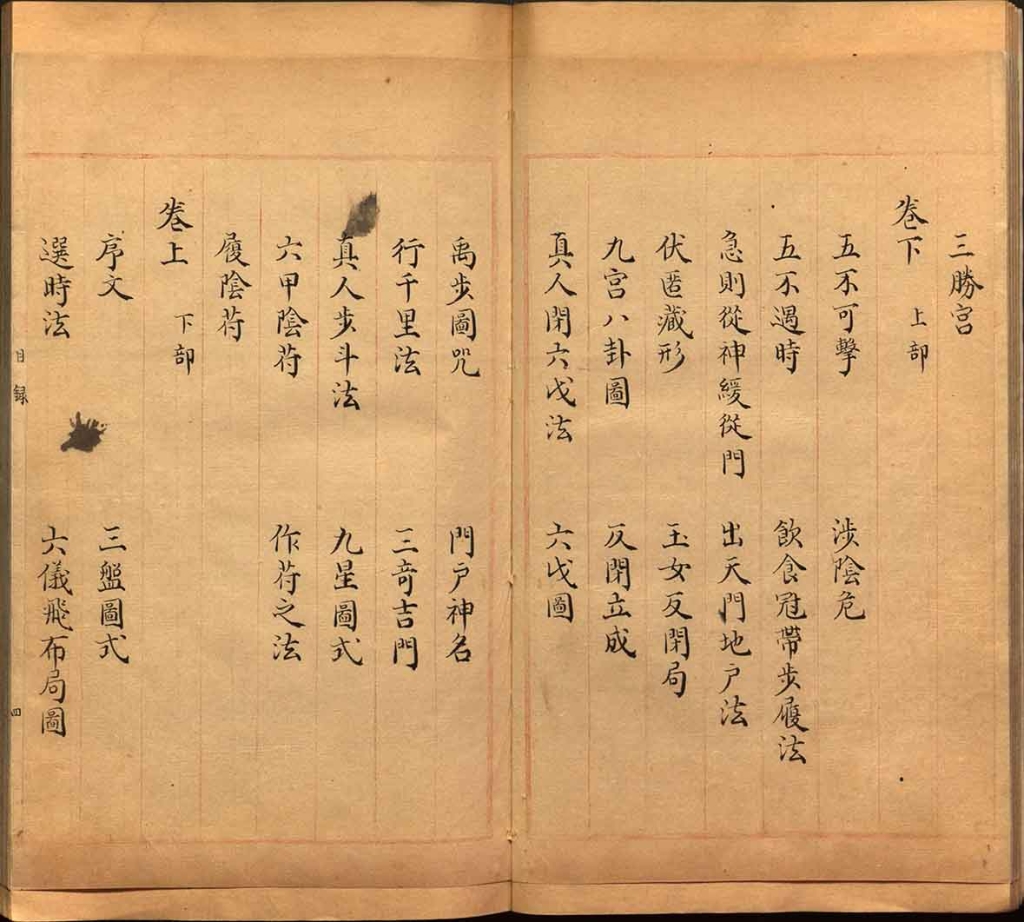 三勝宮
卷下 上部
五不可擊 涉陰危
五不遇時 飲食冠帶步履法
急則從神緩從門 出天門地户法
伏匿藏形 玉女反閉局
九宮八卦圖 反閉立成
真人閉六戊法 六戊圖
禹步圖咒 門户神名
行千里法 三奇吉門
真人步斗法 九星圖式
六甲陰符 作符之法
履陰符
卷上 下部
序文 三盤圖式
選時法 六儀飛布局圖
目錄 四